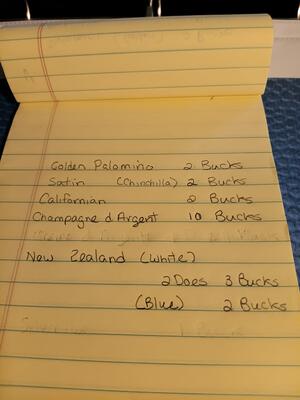 Golden Palomino 2 Bucks
Satin (Chinchilla) 2 Bucks
Californian 2 Bucks
Champagne d Argent 10 Bucks
New Zealand (White)
2 Does 3 Bucks
(Blue) 2 Bucks